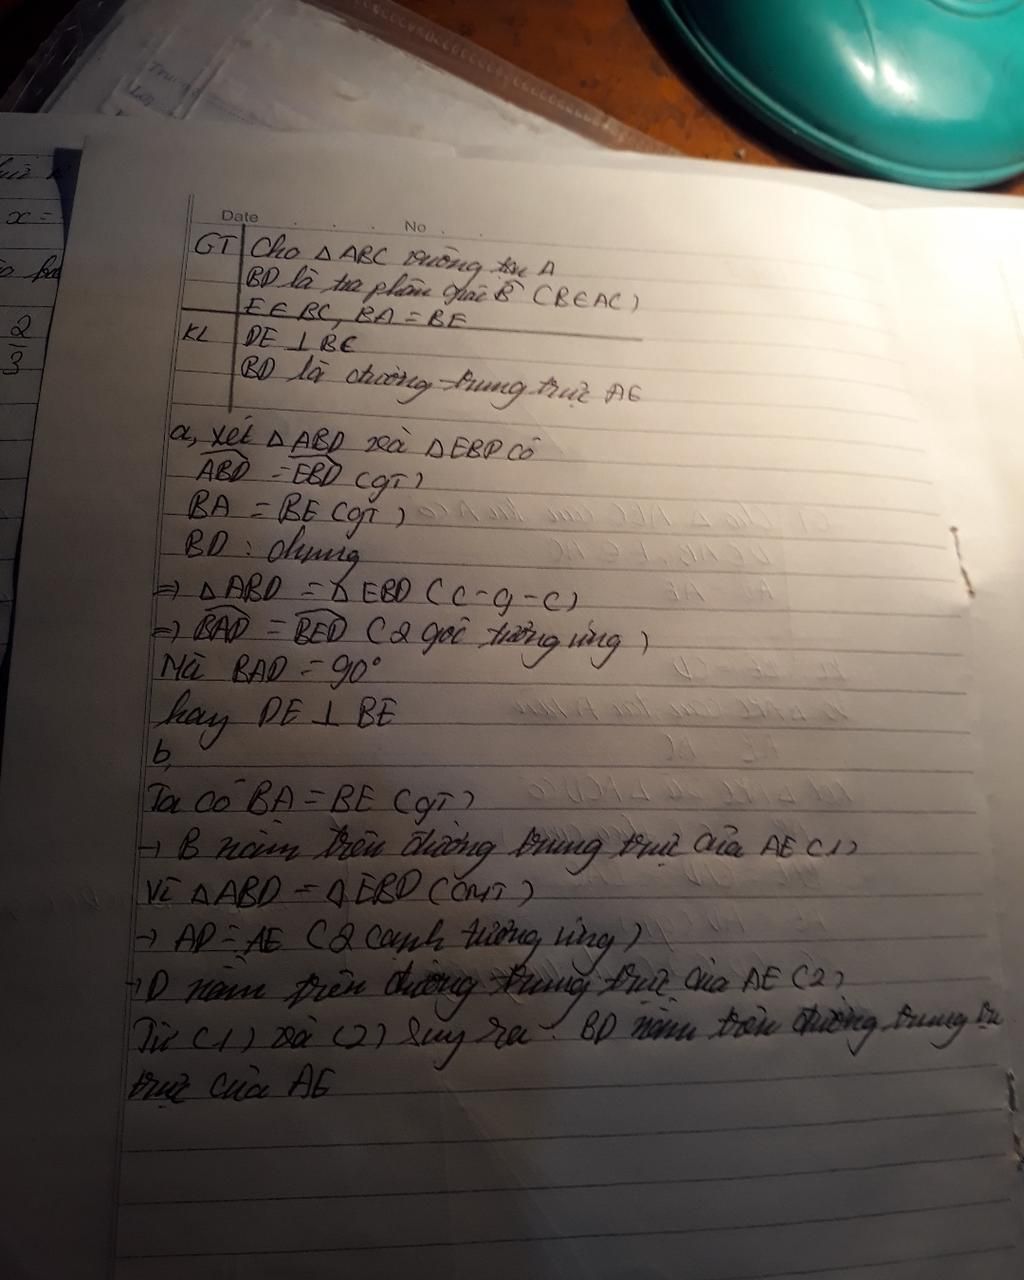 Date No
GT Cho △ABC vuông tại A
BD là tia phân giác B̂ (B∈AC)
E∈BC, BA=BE
KL DE⊥BE
BD là đường trung trực AE
a, xét △ABD và △EBD có
ABD = EBD (gT)
BA = BE (gT)
BD : chung
=> △ABD = △EBD (c-g-c)
=> BAD = BED (2 góc tương ứng)
Mà BAD = 90°
hay DE ⊥ BE
b,
Ta có BA = BE (gT)
→ B nằm trên đường trung trực của AE (1)
Vì △ABD = △EBD (CMT)
→ AD = AE (2 cạnh tương ứng)
→ D nằm trên đường trung trực của AE (2)
Từ (1) và (2) suy ra: BD nằm trên đường trung
trực của AE
x =
2
3